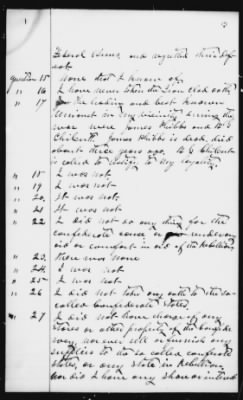 Federal Army, and regretted their defeat
Question 15 None that I know of.
" 16 I have never taken the Iron clad oath,
" 17 The leading and best known
Unionist in my vicinity during the
war were James Phibbs and W G
Chilcutt. James Phibbs is dead, died
about three years ago. W G Chilcutt
is called to testify to my loyalty.
" 18 I was not
" 19 I was not
" 20. It was not
" 21 It was not
" 22 I did not do any thing for the
confederate cause, or render any
aid or comfort in aid of the Rebellion.
" 23. there was none
" 24. I was not
" 25 I was not
" 26 I did not take any oath to the so-
called Confederate States.
" 27 I did not have charge of any
stores or other property of the
nor ever sell or furnish any
supplies to the so called confederate
states, or any State in Rebellion,
nor did I have any share or interest